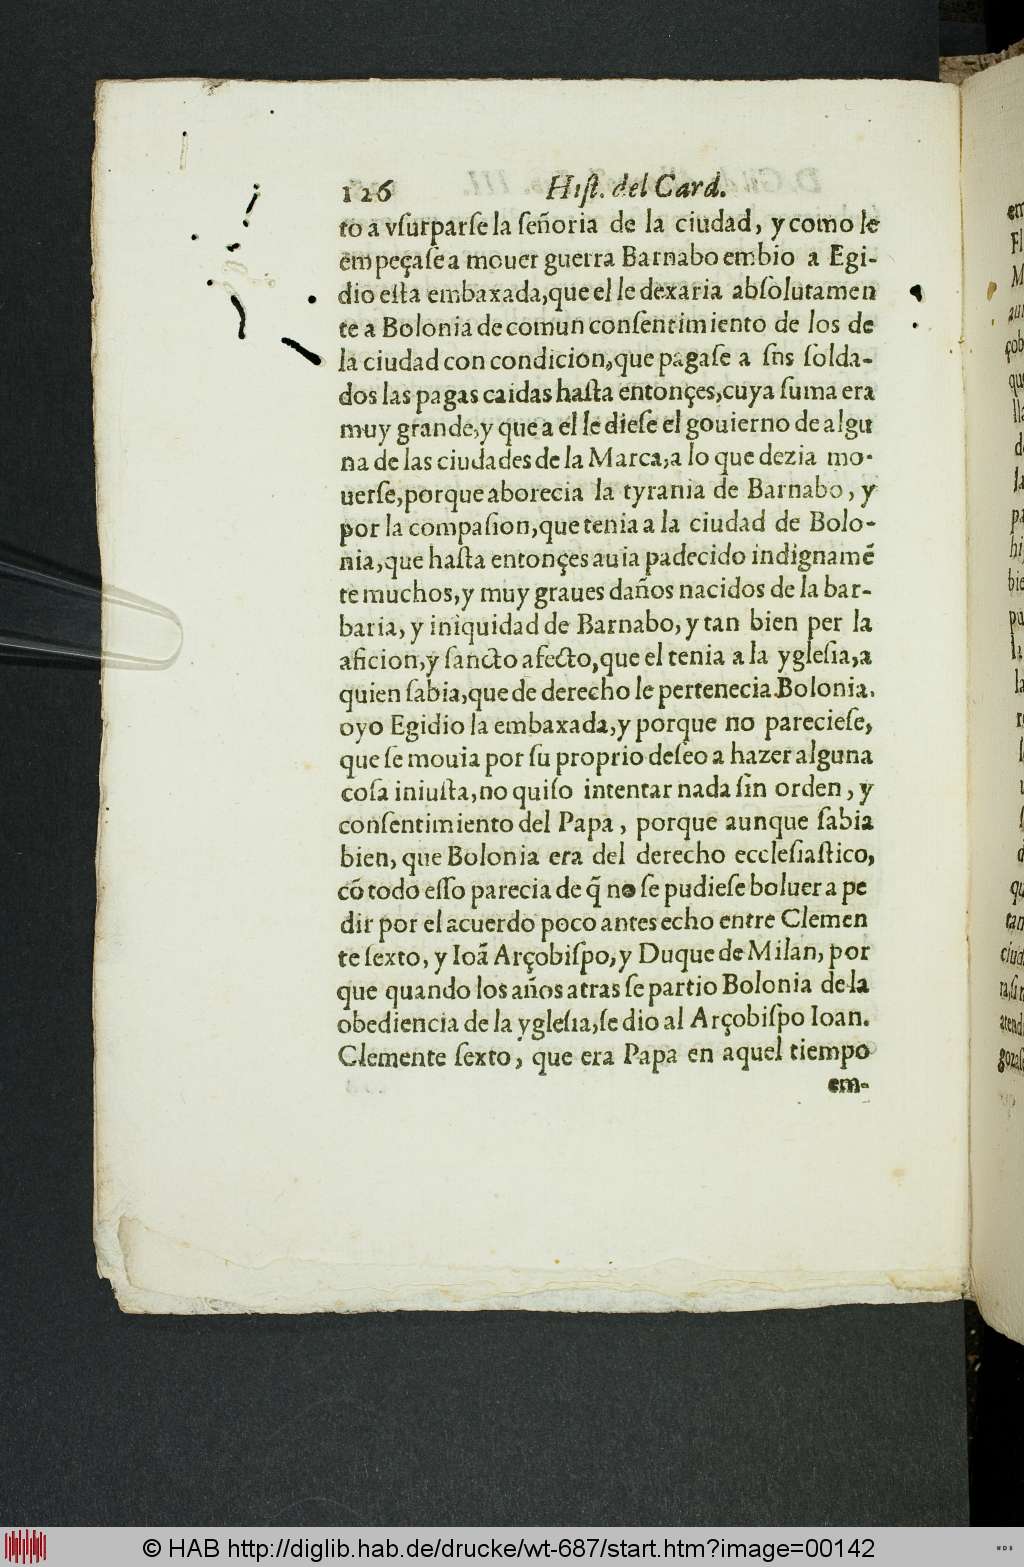 126 Hist. del Card.
to a vſurparſe la ſeñoria de la ciudad, y como le
empeçaſe a mouer guerra Barnabo embio a Egi-
dio eſta embaxada, que el le dexaria abſolutamen
te a Bolonia de comun conſentimiento de los de
la ciudad con condicion, que pagaſe a ſns ſolda-
dos las pagas caidas haſta entonçes, cuya ſuma era
muy grande, y que a el le dieſe el gouierno de algu
na de las ciudades de la Marca, a lo que dezia mo-
uerſe, porque aborecia la tyrania de Barnabo, y
por la compaſion, que tenia a la ciudad de Bolo-
nia, que haſta entonçes auia padecido indignamē
te muchos, y muy graues daños nacidos de la bar-
baria, y iniquidad de Barnabo, y tan bien per la
aficion, y ſancto afecto, que el tenia a la ygleſia, a
quien ſabia, que de derecho le pertenecia Bolonia.
oyo Egidio la embaxada, y porque no parecieſe,
que ſe mouia por ſu proprio deſeo a hazer alguna
coſa iniuſta, no quiſo intentar nada ſin orden, y
conſentimiento del Papa, porque aunque ſabia
bien, que Bolonia era del derecho eccleſiaſtico,
cō todo eſſo parecia de q̃ no ſe pudieſe boluer a pe
dir por el acuerdo poco antes echo entre Clemen
te ſexto, y Ioã Arçobiſpo, y Duque de Milan, por
que quando los años atras ſe partio Bolonia de la
obediencia de la ygleſia, ſe dio al Arçobiſpo Ioan.
Clemente ſexto, que era Papa en aquel tiempo
em-
© HAB http://diglib.hab.de/drucke/wt-687/start.htm?image=00142